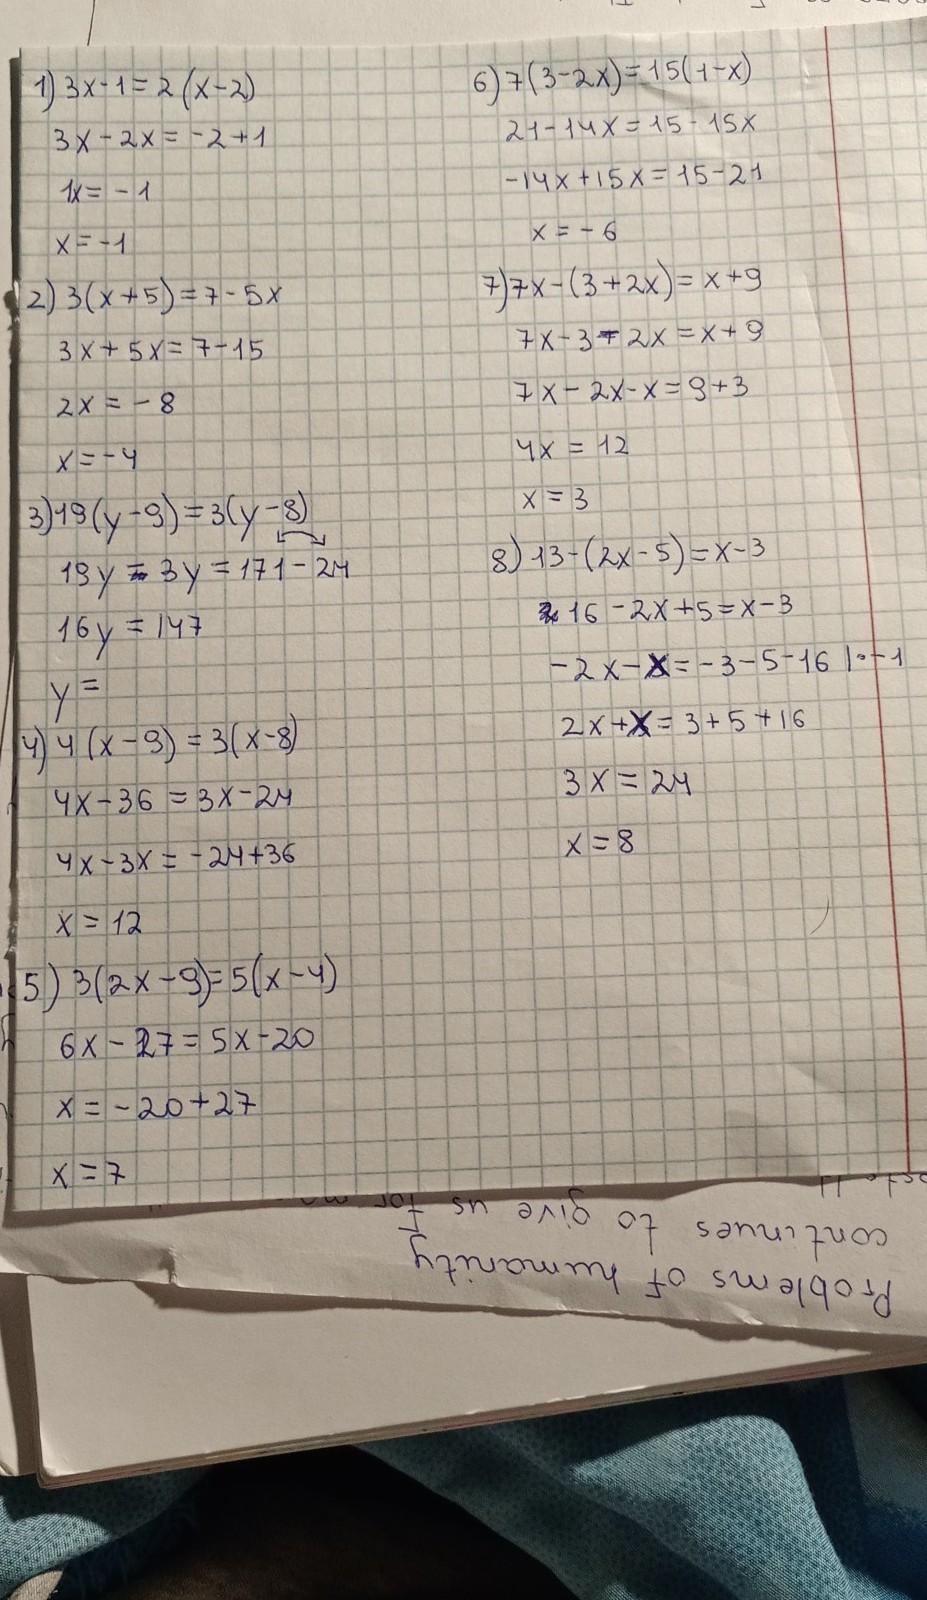 1) 3x-1=2(x-2)
3x-2x=-2+1
1x=-1
x=-1
2) 3(x+5)=7-5x
3x+5x=7-15
2x=-8
x=-4
3) 19(y-9)=3(y-8)
19y-3y=171-24
16y=147
y=
4) 4(x-9)=3(x-8)
4x-36=3x-24
4x-3x=-24+36
x=12
5) 3(2x-9)=5(x-4)
6x-27=5x-20
x=-20+27
x=7
6) 7(3-2x)=15(1-x)
21-14x=15-15x
-14x+15x=15-21
x=-6
7) 7x-(3+2x)=x+9
7x-3-2x=x+9
7x-2x-x=9+3
4x=12
x=3
8) 13-(2x-5)=x-3
16-2x+5=x-3
-2x-x=-3-5-16 |·-1
2x+x=3+5+16
3x=24
x=8
continues to give us for
Problems of humanity